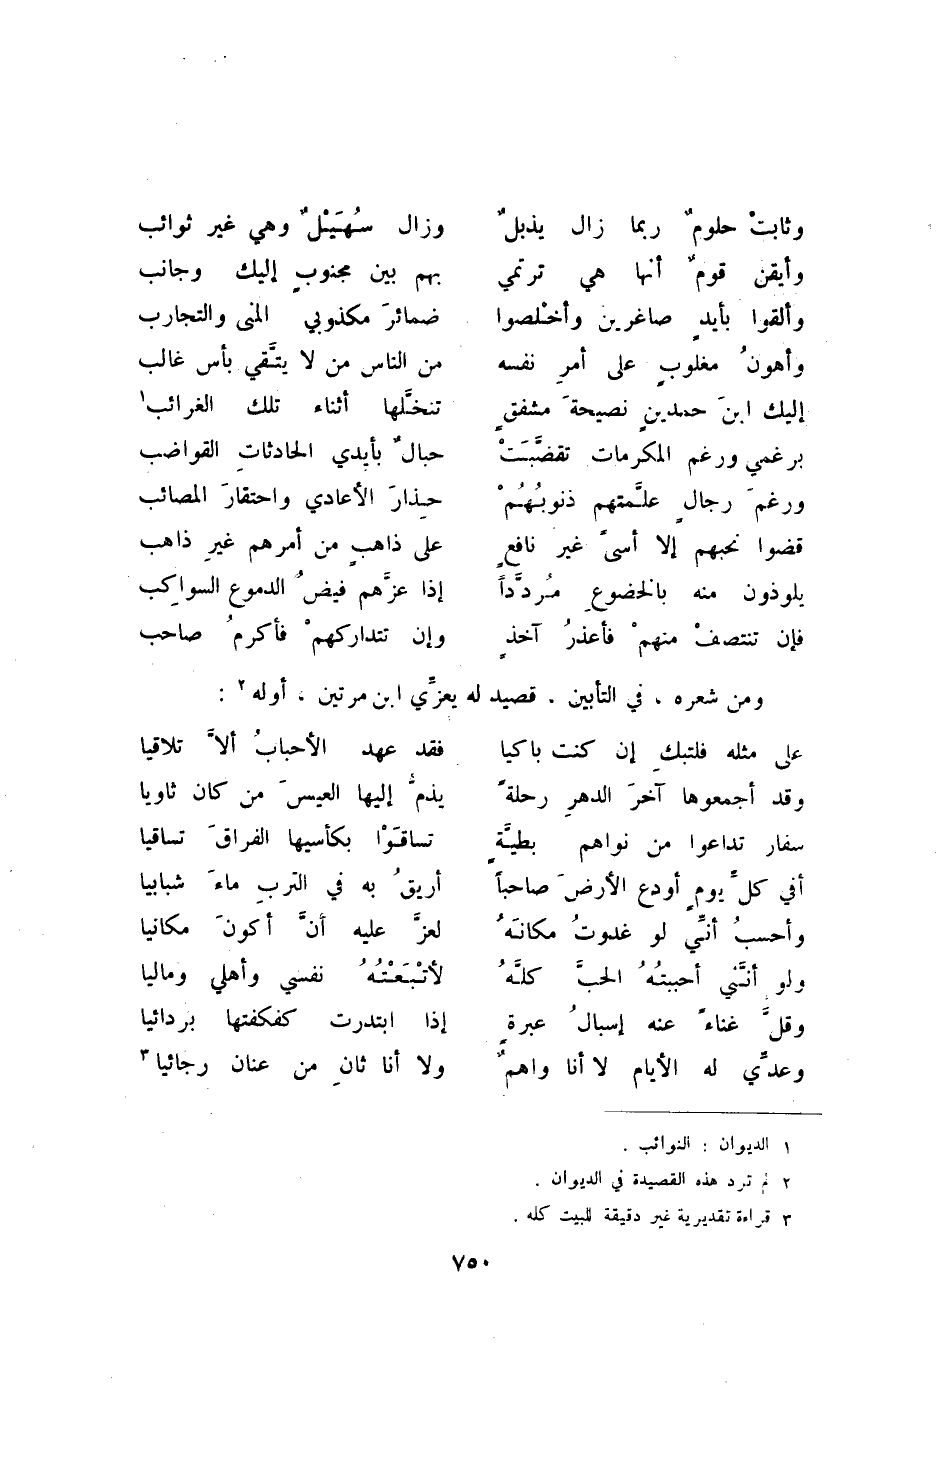 وثابتْ حلومٌ ربما زال يذبلٌ وزال سُهَيْلٌ وهي غير ثوائب
وأيقن قومٌ أنها هي ترتمي بهم بين مجنوبٍ إليك وجانب
وألقوا بأيدٍ صاغرين وأخْلصوا ضمائرَ مكذوبي المنى والتجارب
وأهونُ مغلوبٍ على أمرِ نفسه من الناس من لا يتَّقي بأس غالب
إليك ابنَ حمدينٍ نصيحةَ مشفقٍ تنخَّلها أثناء تلك الغرائب١
برغمي ورغم المكرمات تقضَّبَتْ حبالٌ بأيدي الحادثاتِ القواضب
ورغمَ رجالٍ علَّمتهم ذنوبُهُمْ حِذارَ الأعادي واحتقارَ المصائب
قضوا نحبهم إلا أسىً غير نافعٍ على ذاهبٍ من أمرهم غيرِ ذاهب
يلوذون منه بالخضوعِ مُردَّداً إذا عزَّهم فيضُ الدموع السواكِب
فإن تنتصفْ منهمْ فأعذرُ آخذٍ وإن تتداركهمْ فأكرمُ صاحب
ومن شعره ، في التأبين . قصيد له يعزِّي ابن مرتين ، أوله ٢ :
على مثله فلتبكِ إن كنت باكيا فقد عهد الأحبابُ ألاَّ تلاقيا
وقد أجمعوها آخرَ الدهرِ رحلةً يذمُّ إليها العيسَ من كان ثاويا
سفار تداعوا من نواهم بطيَّةٍ تساقَوْا بكأسيها الفراقَ تساقيا
أفي كلِّ يومٍ أودع الأرضَ صاحباً أريقُ به في التربِ ماءَ شبابيا
وأحسبُ أنِّي لو غدوتُ مكانَهُ لعزَّ عليه أنَّ أكونَ مكانيا
ولو أنَّني أحببتُهُ الحبَّ كلَّهُ لأتْبَعْتُهُ نفسي وأهلي وماليا
وقلَّ غناءً عنه إسبالُ عبرةٍ إذا ابتدرت كفكفتها بردائيا
وعدِّي له الأيام لا أنا واهمٌ ولا أنا ثانٍ من عنان رجائيا٣
١ الديوان : النوائب .
٢ لم ترد هذه القصيدة في الديوان .
٣ قراءة تقديرية غير دقيقة للبيت كله .
٧٥٠